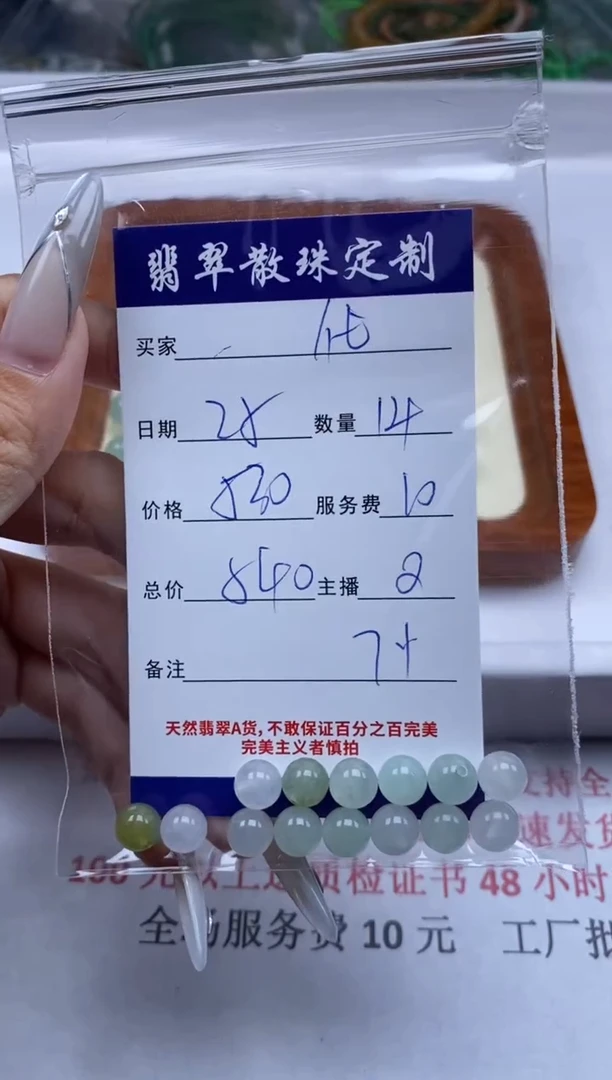 翡翠散珠定制
买家
日期 28 数量 14
价格 830 服务费 10
总价 840 主播 2
备注
天然翡翠A货，不敢保证百分之百完美
完美主义者慎拍
支持全
速发货
100元以上送 质检证书 48 小时
全场服务费 10 元 工厂批